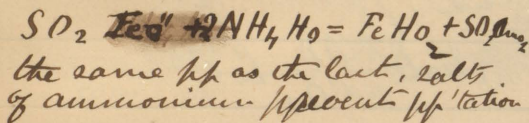 SO2 Feo" +2NH4Ho = FeHo2 + SO2Amo2
the same pp as the last, salts
of ammonium prevents pp'tation